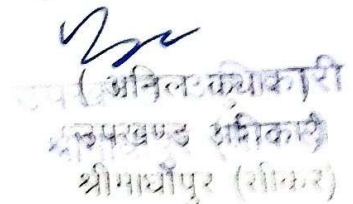 ( अनिल
उपखण्ड अधिकारी
श्रीमाधोपुर (सीकर)